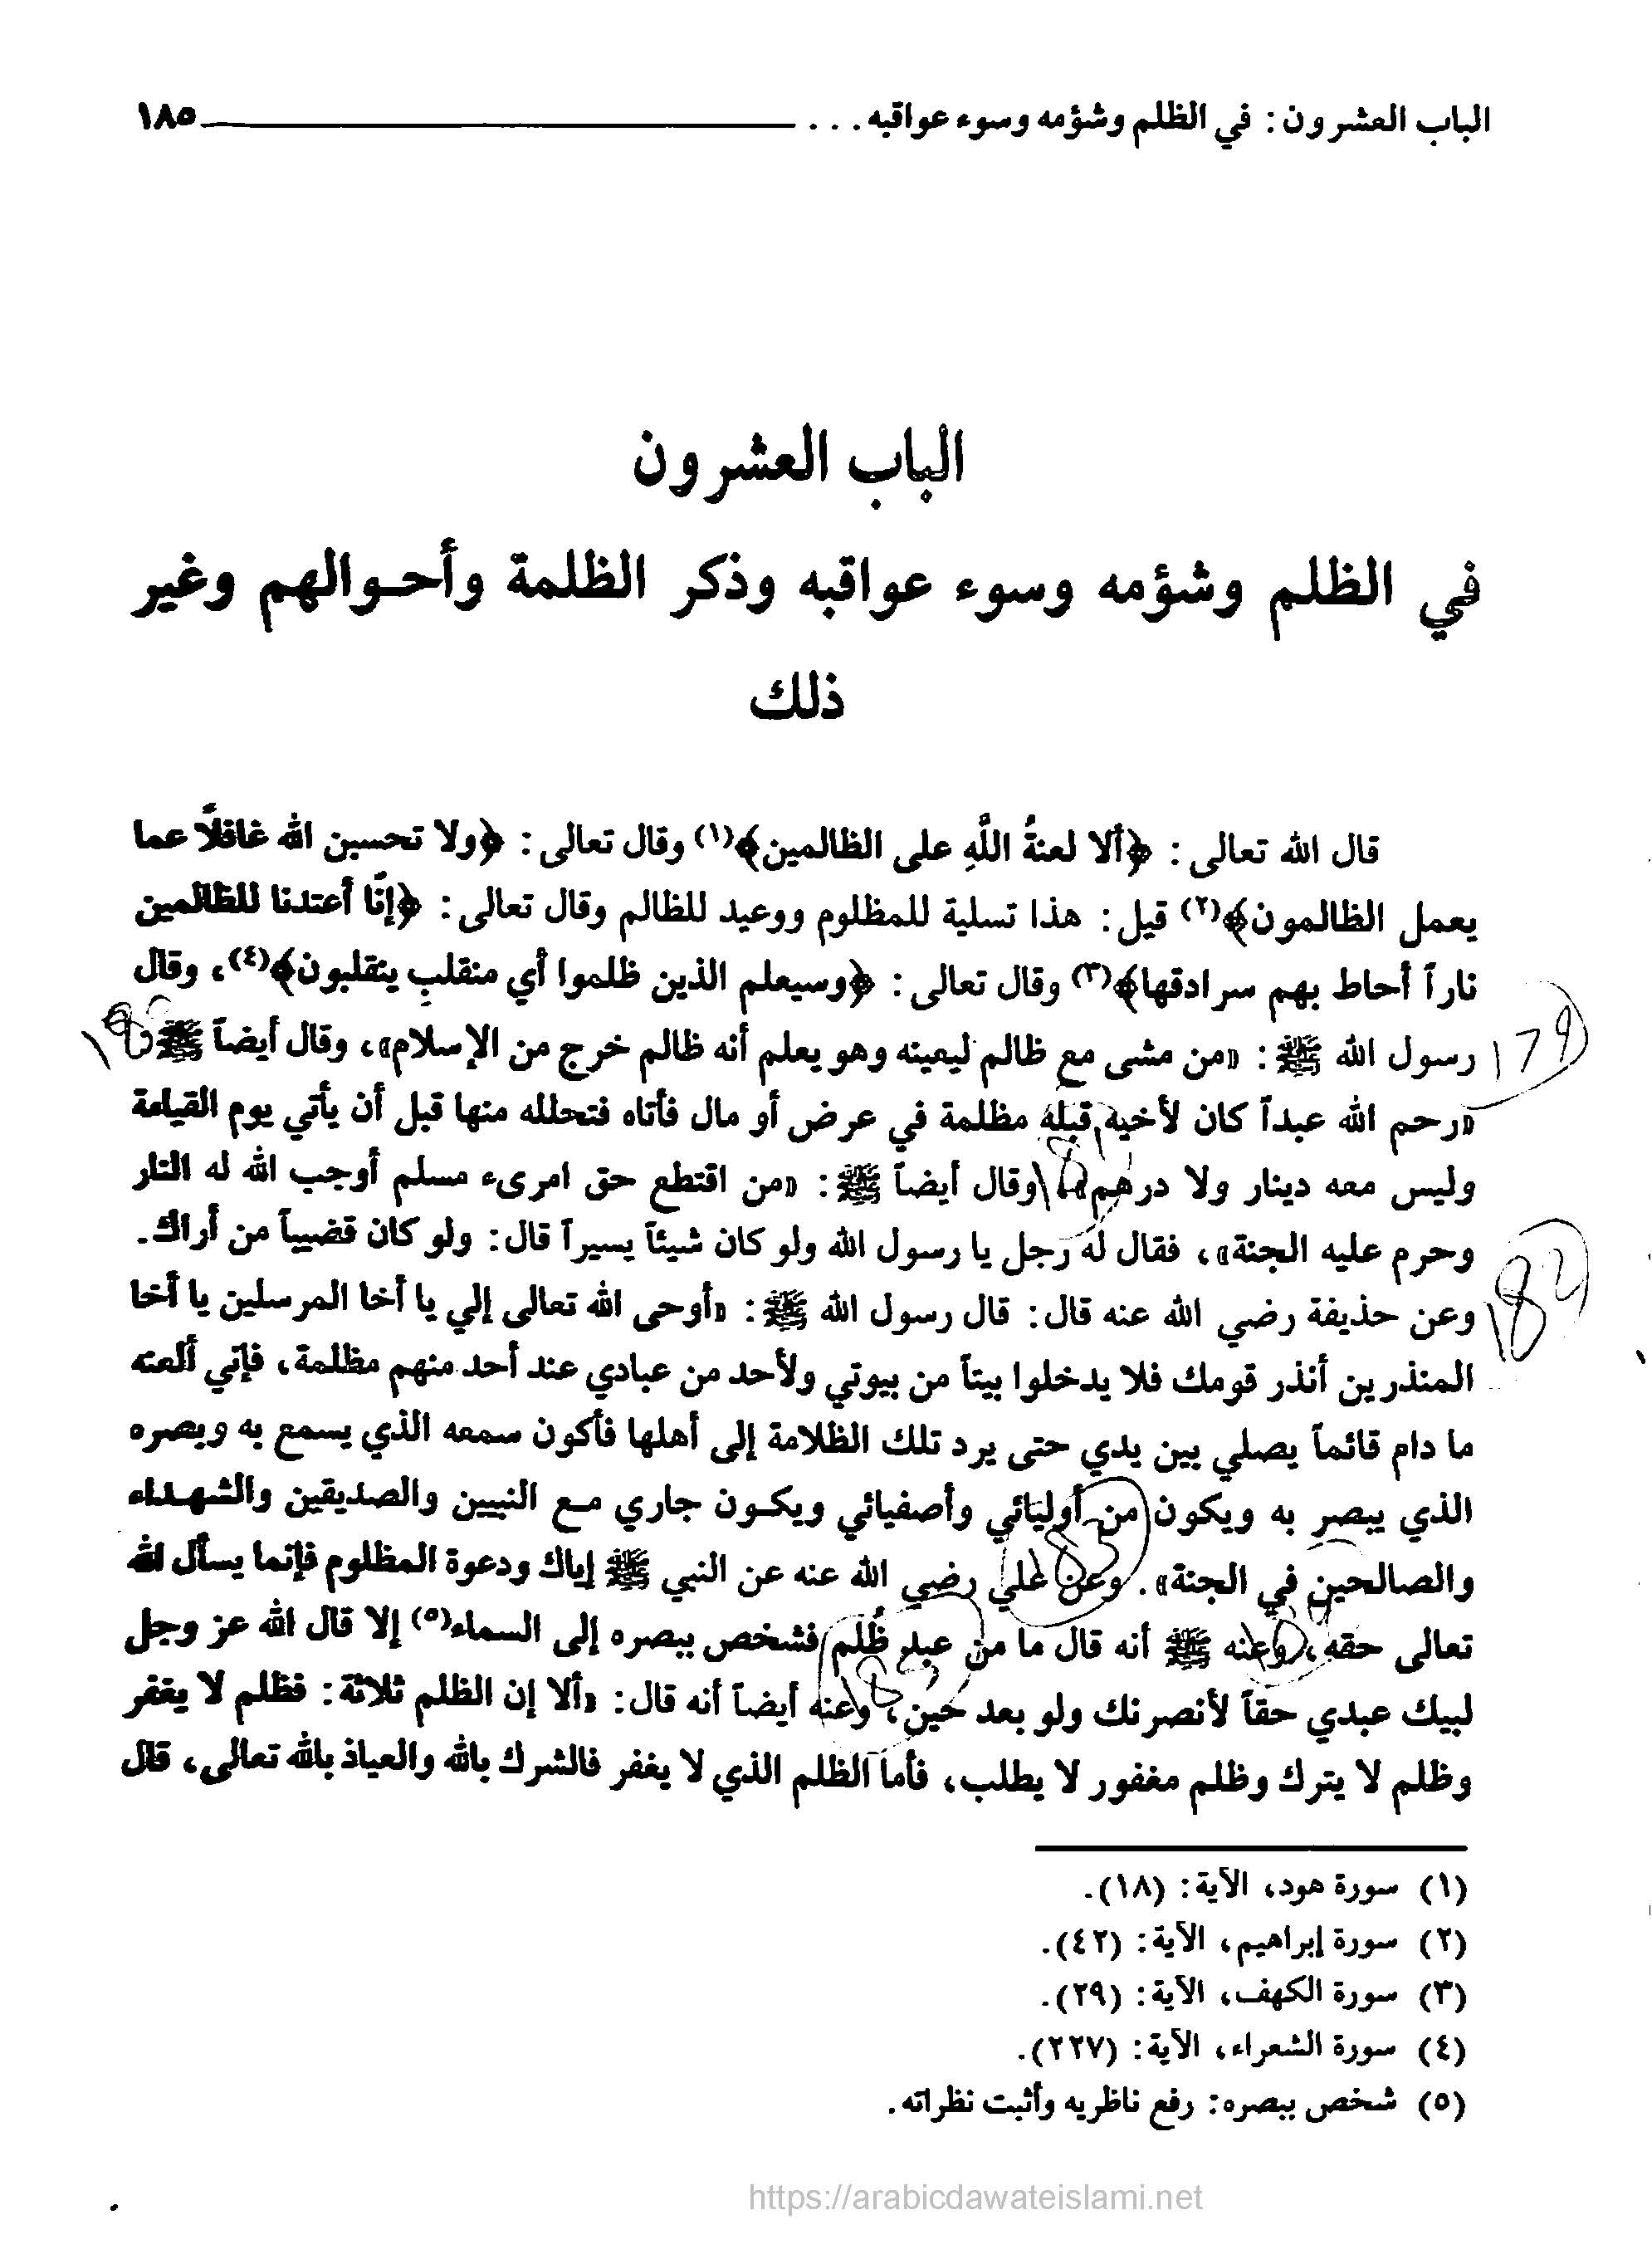 الباب العشرون: في الظلم وشؤمه وسوء عواقبه . . . ١٨٥
الباب العشرون
في الظلم وشؤمه وسوء عواقبه وذكر الظلمة وأحوالهم وغير
ذلك
قال الله تعالى: ﴿ألا لعنةُ اللَّهِ على الظالمين﴾(١) وقال تعالى: ﴿ولا تحسبن الله غافلًا عما
يعمل الظالمون﴾(٢) قيل: هذا تسلية للمظلوم ووعيد للظالم وقال تعالى: ﴿إنَّا أعتدنا للظالمين
ناراً أحاط بهم سرادقها﴾(٣) وقال تعالى: ﴿وسيعلم الذين ظلموا أي منقلبٍ ينقلبون﴾(٤)، وقال
رسول الله ﷺ: «من مشى مع ظالم ليعينه وهو يعلم أنه ظالم خرج من الإسلام»، وقال أيضاً ﷺ
«رحم الله عبداً كان لأخيه قبله مظلمة في عرض أو مال فأتاه فتحلله منها قبل أن يأتي يوم القيامة
وليس معه دينار ولا درهم» وقال أيضاً ﷺ: «من اقتطع حق امرىء مسلم أوجب الله له النار
وحرم عليه الجنة»، فقال له رجل يا رسول الله ولو كان شيئاً يسيراً قال: ولو كان قضيباً من أراك.
وعن حذيفة رضي الله عنه قال: قال رسول الله ﷺ: «أوحى الله تعالى إلي يا أخا المرسلين يا أخا
المنذرين أنذر قومك فلا يدخلوا بيتاً من بيوتي ولأحد من عبادي عند أحد منهم مظلمة، فإني ألعنه
ما دام قائماً يصلي بين يدي حتى يرد تلك الظلامة إلى أهلها فأكون سمعه الذي يسمع به وبصره
الذي يبصر به ويكون من أوليائي وأصفيائي ويكون جاري مع النبيين والصديقين والشهداء
والصالحين في الجنة». وعن علي رضي الله عنه عن النبي ﷺ إياك ودعوة المظلوم فإنما يسأل الله
تعالى حقه، وعنه ﷺ أنه قال ما من عبد ظُلم فشخص ببصره إلى السماء(٥) إلا قال الله عز وجل
لبيك عبدي حقاً لأنصرنك ولو بعد حين، وعنه أيضاً أنه قال: «ألا إن الظلم ثلاثة: فظلم لا يغفر
وظلم لا يترك وظلم مغفور لا يطلب، فأما الظلم الذي لا يغفر فالشرك بالله والعياذ بالله تعالى، قال
(١) سورة هود، الآية: (١٨).
(٢) سورة إبراهيم، الآية: (٤٢).
(٣) سورة الكهف، الآية: (٢٩).
(٤) سورة الشعراء، الآية: (٢٢٧).
(٥) شخص ببصره: رفع ناظريه وأثبت نظراته.
179
182
183
https://arabicdawateislami.net